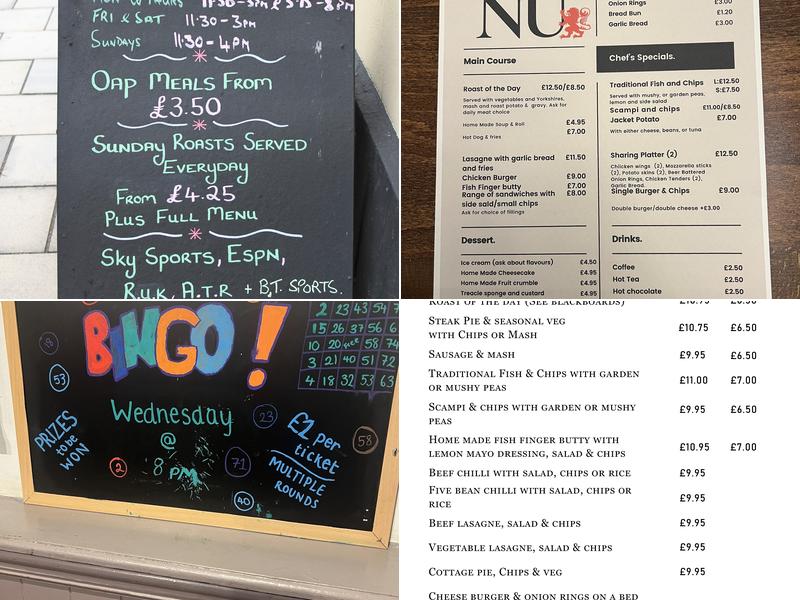 FRI & SAT 11·30-3PM
SUNDAYS 11·30-4PM
OAP MEALS FROM
£3.50
SUNDAY ROASTS SERVED
EVERYDAY
FROM £4.25
PLUS FULL MENU
SKY SPORTS, ESPN,
R.U.K, A.T.R + B.T. SPORTS.
NU
Onion Rings £3.00
Bread Bun £1.20
Garlic Bread £3.00
Main Course
Roast of the Day £12.50/£8.50
Served with vegetables and Yorkshires,
mash and roast potato & gravy. Ask for
daily meat choice
Home Made Soup & Roll £4.95
Hot Dog & fries £7.00
Lasagne with garlic bread £11.50
and fries
Chicken Burger £9.00
Fish Finger butty £7.00
Range of sandwiches with £8.00
side salad/small chips
Ask for choice of fillings
Dessert.
Ice cream (ask about flavours) £4.50
Home Made Cheesecake £4.95
Home Made Fruit crumble £4.95
Treacle sponge and custard £4.95
Chef's Specials.
Traditional Fish and Chips L:£12.50
S:£7.50
Served with mushy, or garden peas,
lemon and side salad
Scampi and chips £11.00/£8.50
Jacket Potato £7.00
With either cheese, beans, or tuna
Sharing Platter (2) £12.50
Chicken wings (2), Mozzarella sticks
(2), Potato skins (2), Beer Battered
Onion Rings, Chicken Tenders (2),
Garlic Bread.
Single Burger & Chips £9.00
Double burger/double cheese +£3.00
Drinks.
Coffee £2.50
Hot Tea £2.50
Hot chocolate £2.50
BINGO!
2 23 43 54
15 26 37 56 6
10 20 58 74
3 21 40 51 72
4 18 32 53 63
53
Wednesday
@
8 PM
23
PRIZES
to be
WON
£2 per
ticket
MULTIPLE
ROUNDS
58
2
71
40
ROAST OF THE DAY (SEE BLACKBOARDS)
STEAK PIE & SEASONAL VEG £10.75 £6.50
WITH CHIPS OR MASH
SAUSAGE & MASH £9.95 £6.50
TRADITIONAL FISH & CHIPS WITH GARDEN £11.00 £7.00
OR MUSHY PEAS
SCAMPI & CHIPS WITH GARDEN OR MUSHY £9.95 £6.50
PEAS
HOME MADE FISH FINGER BUTTY WITH £10.95 £7.00
LEMON MAYO DRESSING, SALAD & CHIPS
BEEF CHILLI WITH SALAD, CHIPS OR RICE £9.95
FIVE BEAN CHILLI WITH SALAD, CHIPS OR £9.95
RICE
BEEF LASAGNE, SALAD & CHIPS £9.95
VEGETABLE LASAGNE, SALAD & CHIPS £9.95
COTTAGE PIE, CHIPS & VEG £9.95
CHEESE BURGER & ONION RINGS ON A BED